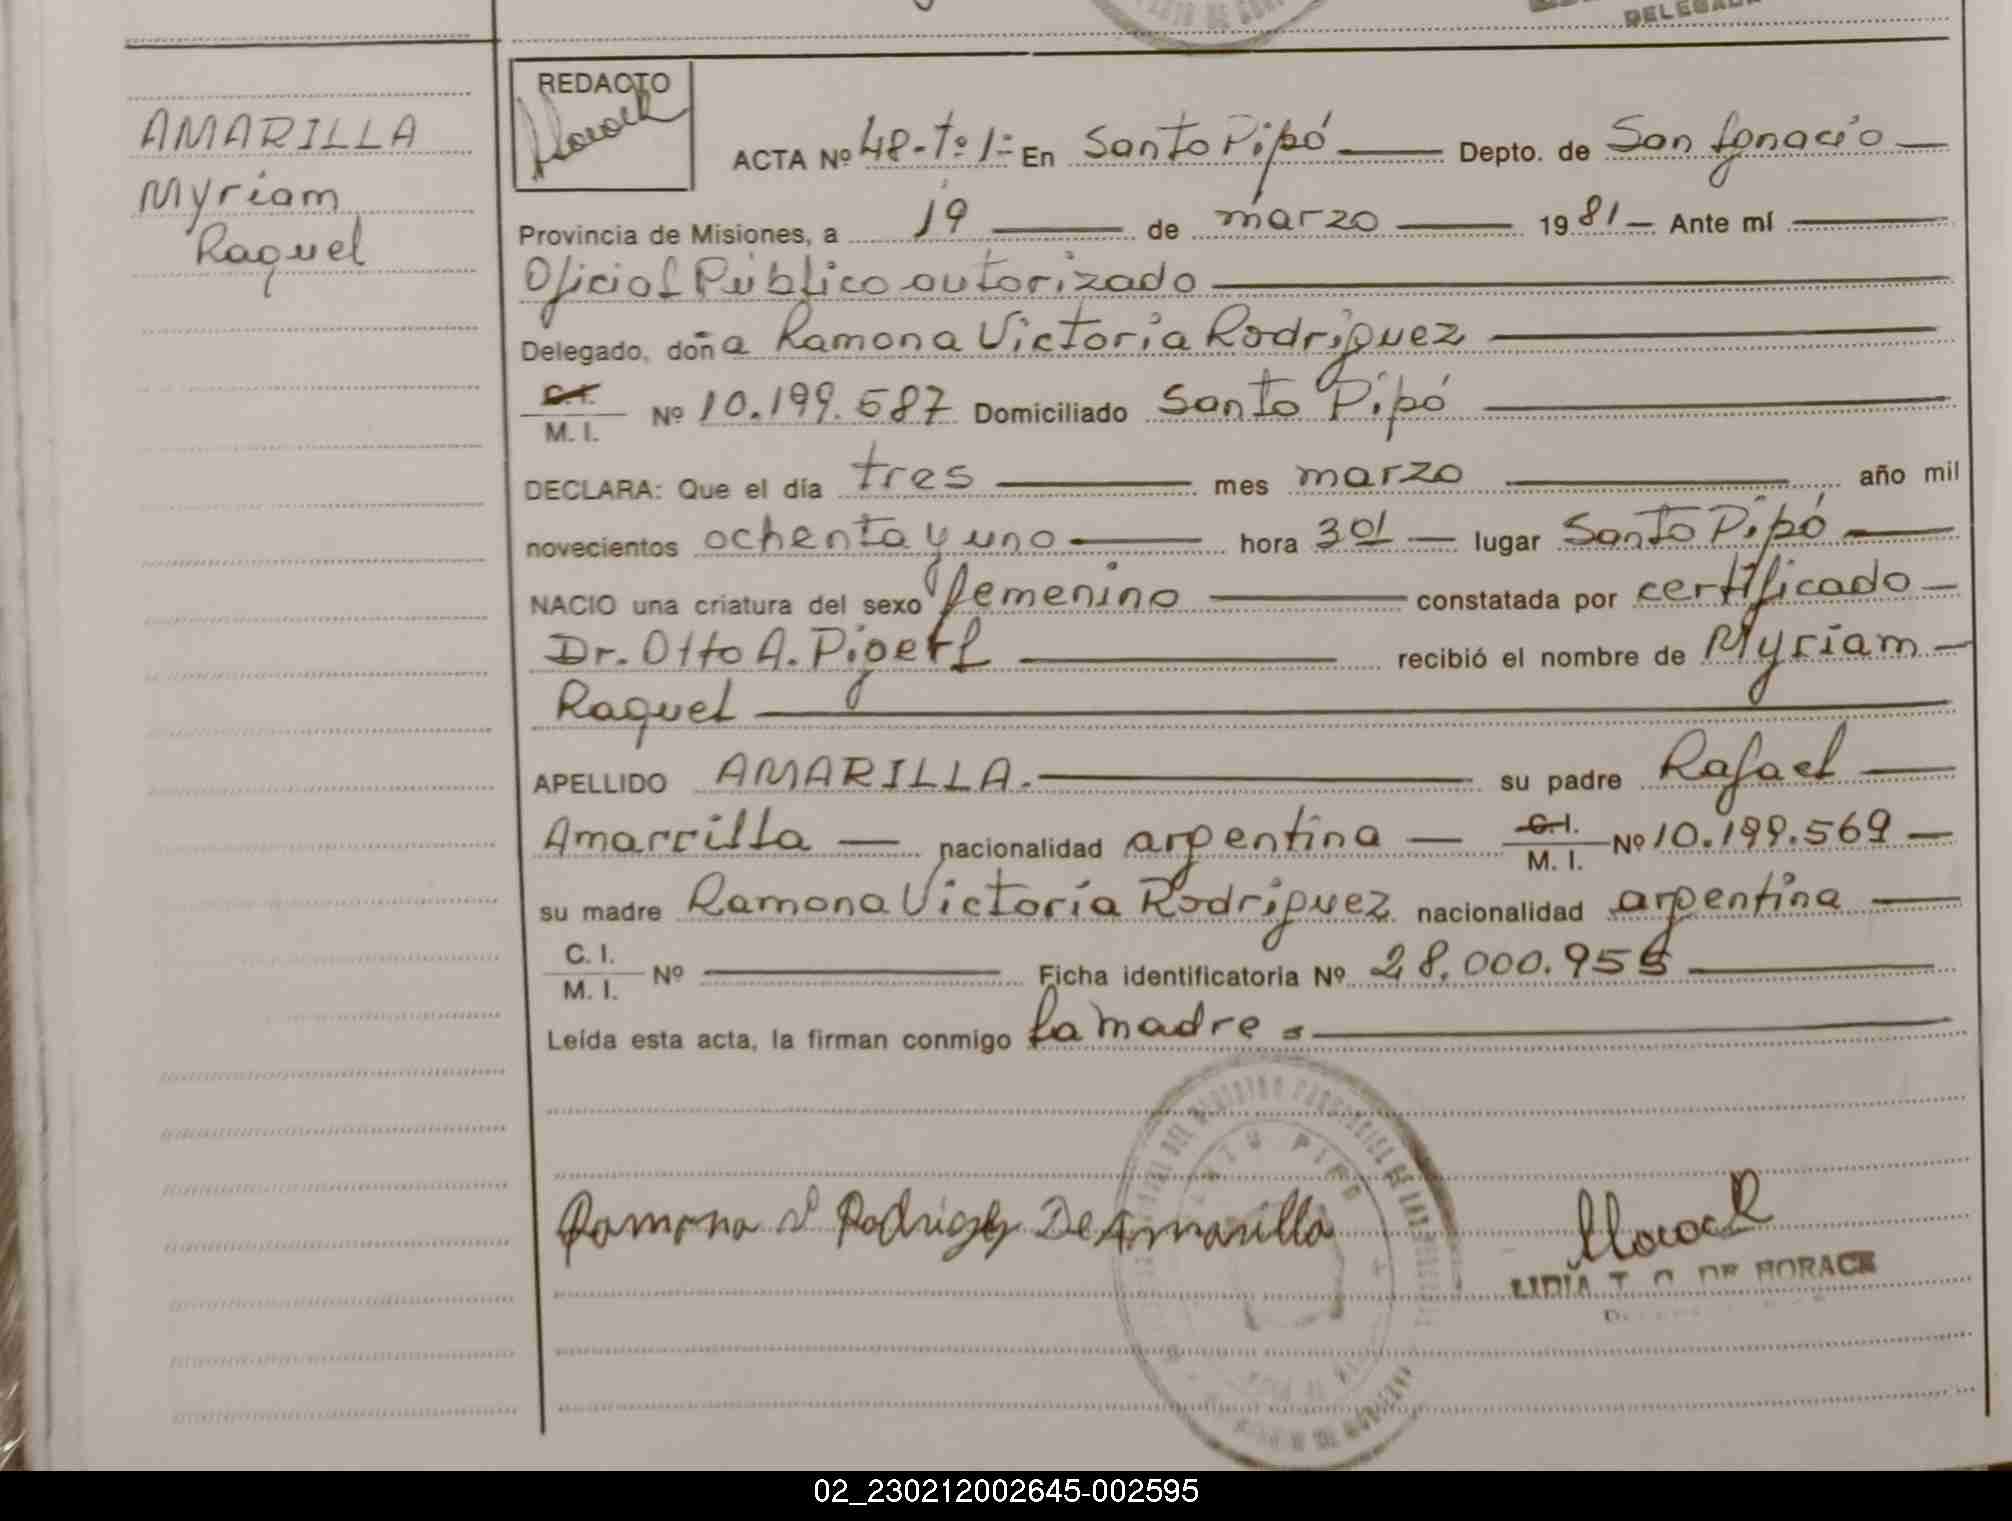 DELEGADA
AMARILLA
Myriam
Raquel
REDACTO
ACTA Nº 48-Tº 1- En Santo Pipó Depto. de San Ignacio
Provincia de Misiones, a 19 de marzo 1981 Ante mí
Oficial Público autorizado
Delegado, doña Ramona Victoria Rodríguez
C. I.
M. I. Nº 10.199.587 Domiciliado Santo Pipó
DECLARA: Que el día tres mes marzo año mil
novecientos ochenta y uno hora 3 01 lugar Santo Pipó
NACIO una criatura del sexo femenino constatada por certificado
Dr. Otto A. Pigerl recibió el nombre de Myriam
Raquel
APELLIDO AMARILLA. su padre Rafael
Amarrilla nacionalidad argentina C. I.
M. I. Nº 10.199.569
su madre Ramona Victoria Rodríguez nacionalidad argentina
C. I.
M. I. Nº Ficha identificatoria Nº 28.000.955
Leída esta acta, la firman conmigo la madre
Ramona V Rodriguez De Amarilla
LIDIA T. DE HORACK
02_230212002645-002595